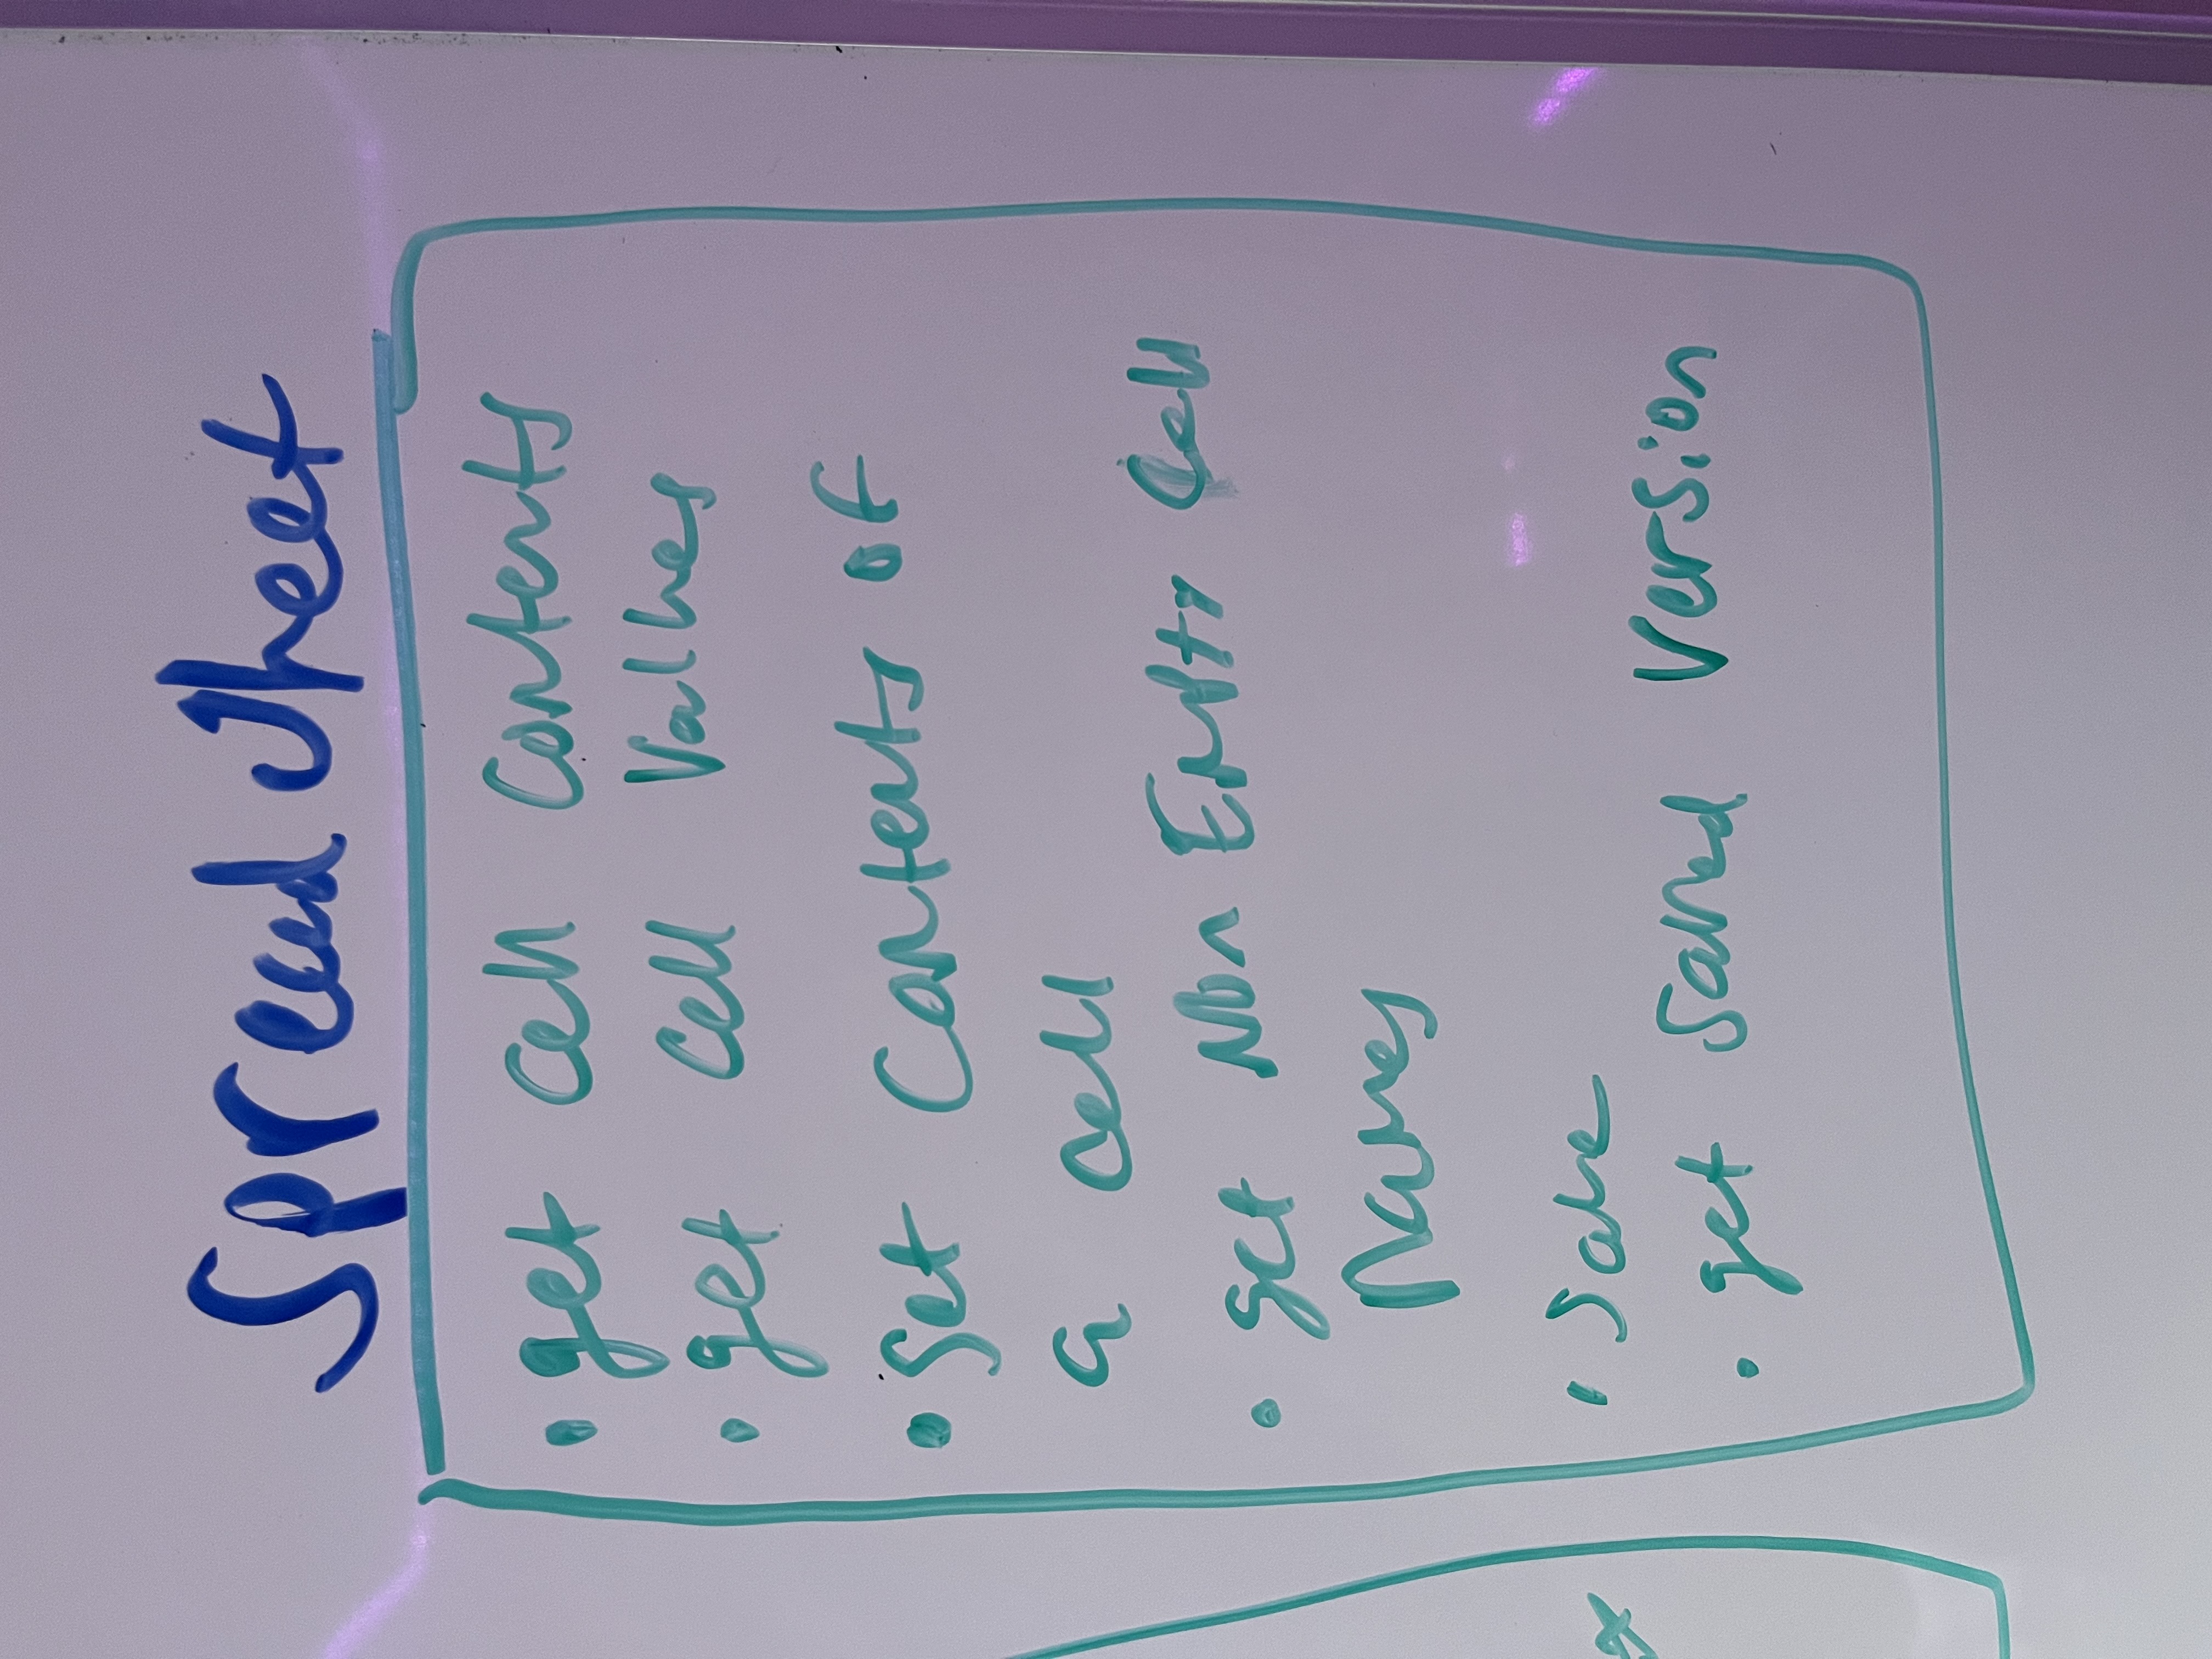 Spreadsheet
• get cell contents
• get cell Values
• Set Contents of
a cell
• get Non Empty Cell
Names
• Save
• get Saved Version